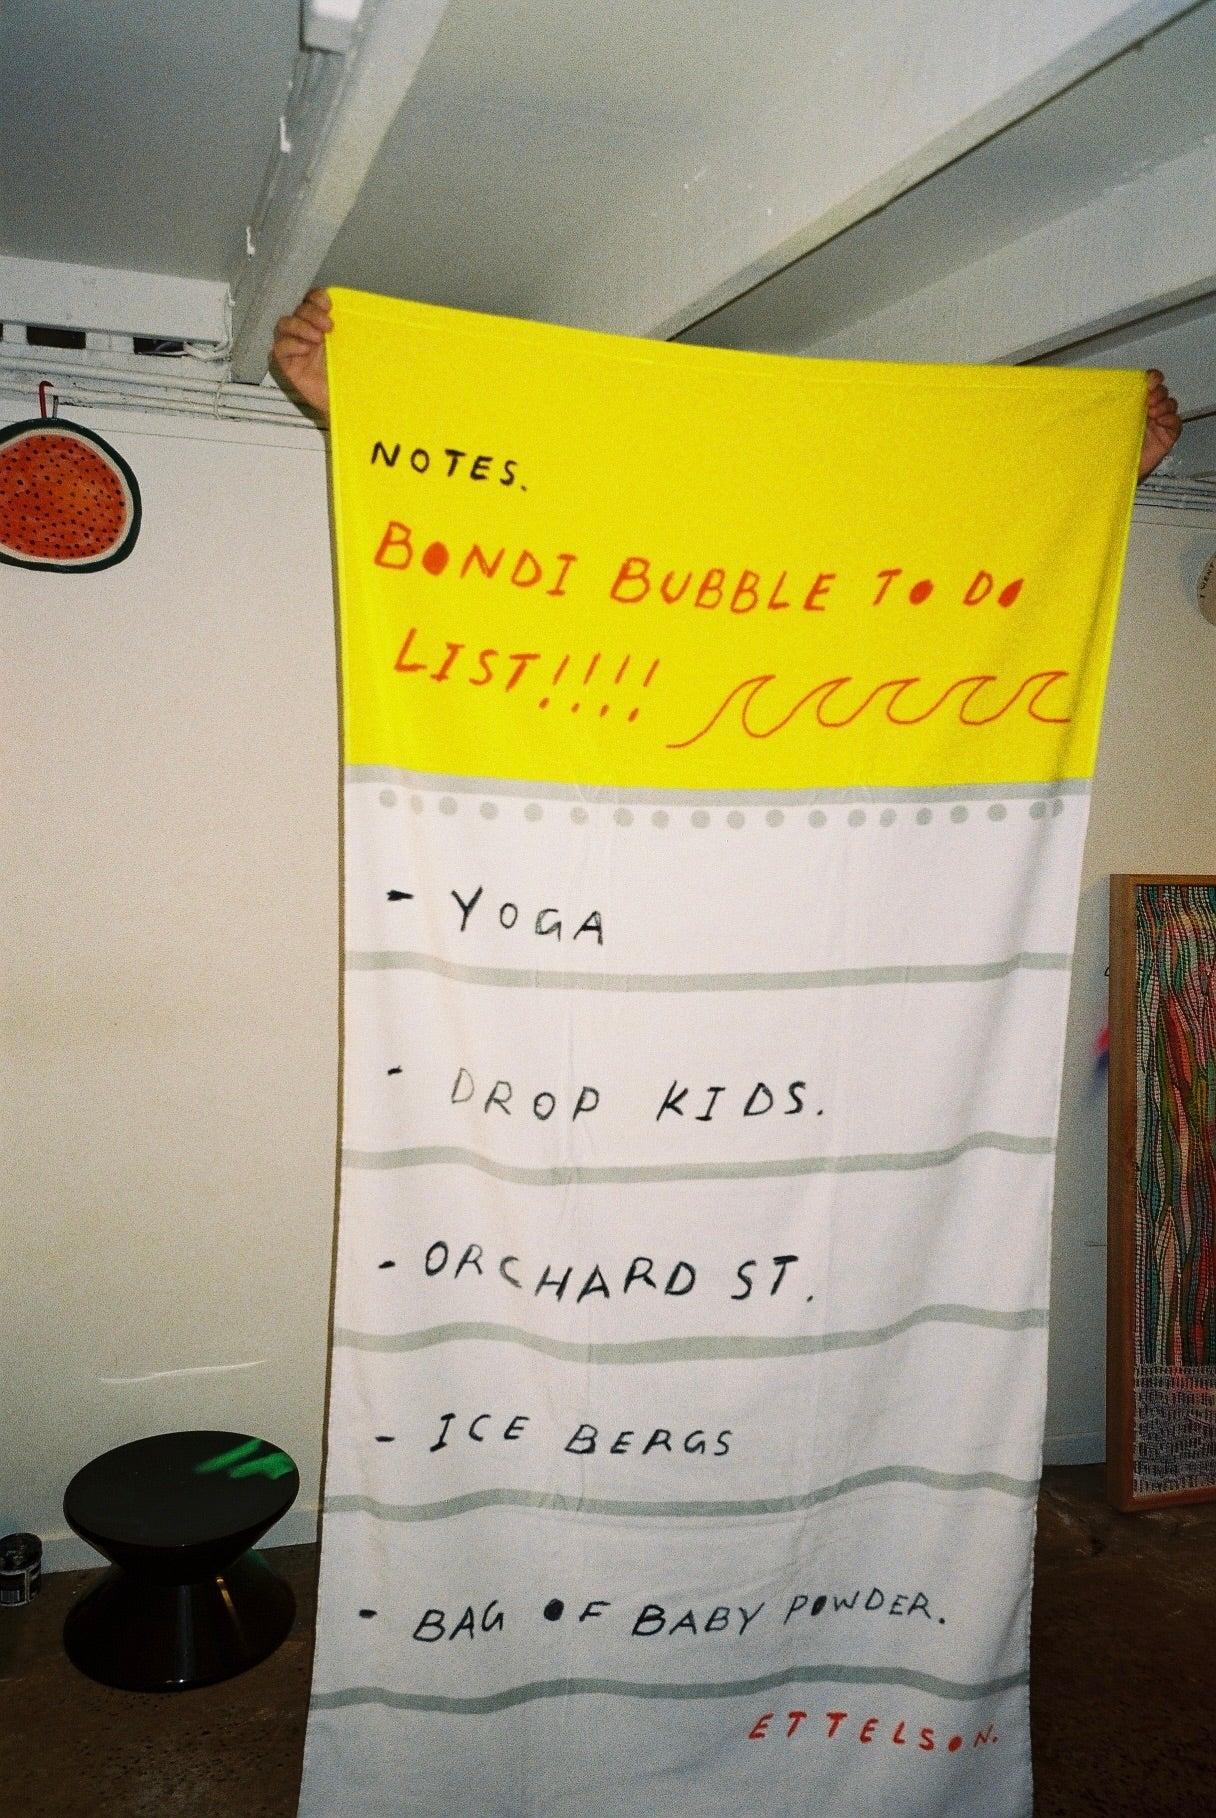 NOTES.
BONDI BUBBLE TO DO
LIST!!!!
- YOGA
- DROP KIDS.
- ORCHARD ST.
- ICE BERGS
- BAG OF BABY POWDER.
ETTELSON.